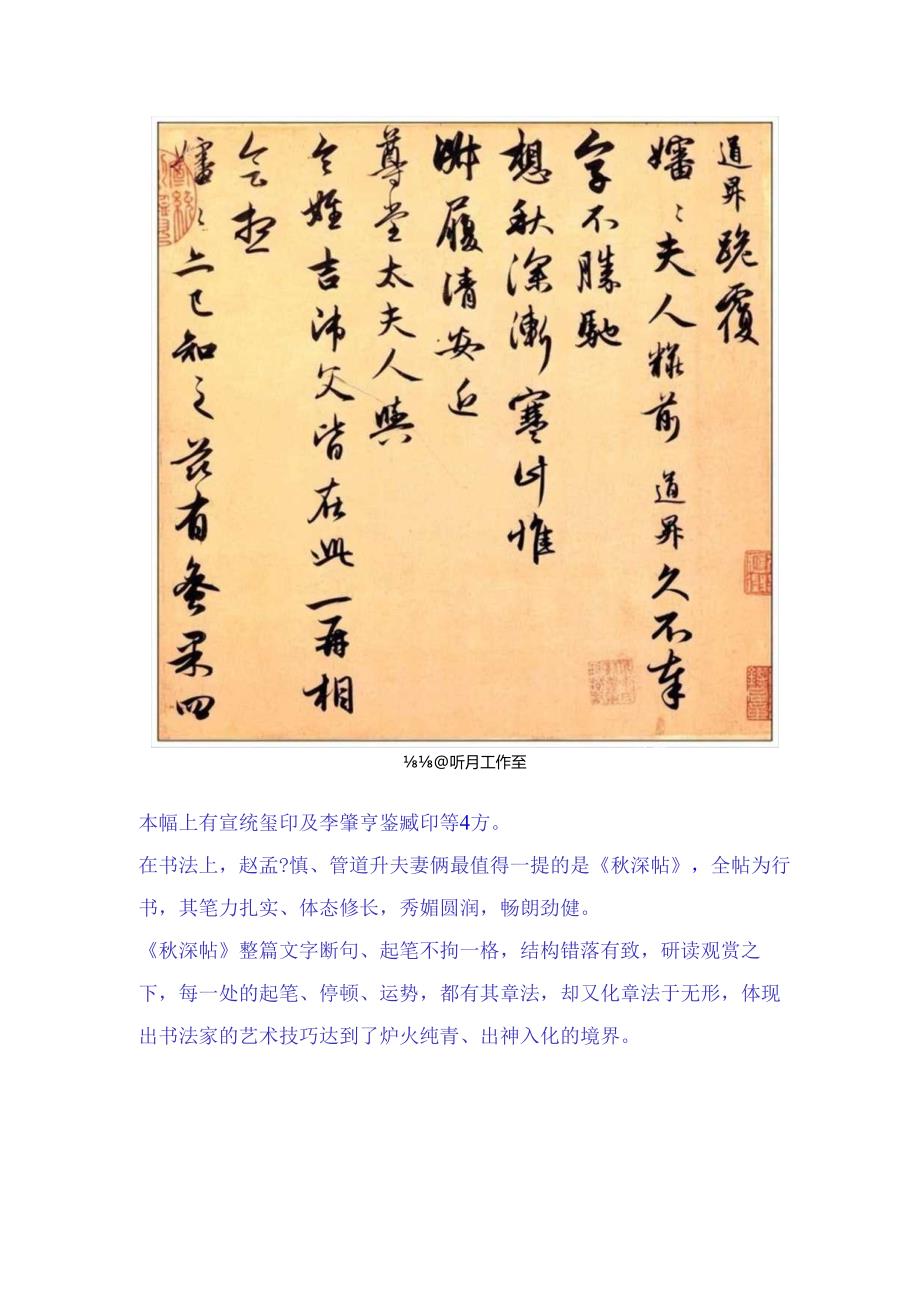 道昇跪覆
嬸〻夫人糚前道昇久不奉
字不勝馳
想秋深漸寒計惟
淑履清安近
尊堂太夫人與
令姪吉師父皆在此一再相
會想
嬸〻亦已知之茲有蜜果四
⅛⅛@听月工作至
本幅上有宣统玺印及李肇亨鉴臧印等4方。
在书法上，赵孟?慎、管道升夫妻俩最值得一提的是《秋深帖》，全帖为行
书，其笔力扎实、体态修长，秀媚圆润，畅朗劲健。
《秋深帖》整篇文字断句、起笔不拘一格，结构错落有致，研读观赏之
下，每一处的起笔、停顿、运势，都有其章法，却又化章法于无形，体现
出书法家的艺术技巧达到了炉火纯青、出神入化的境界。